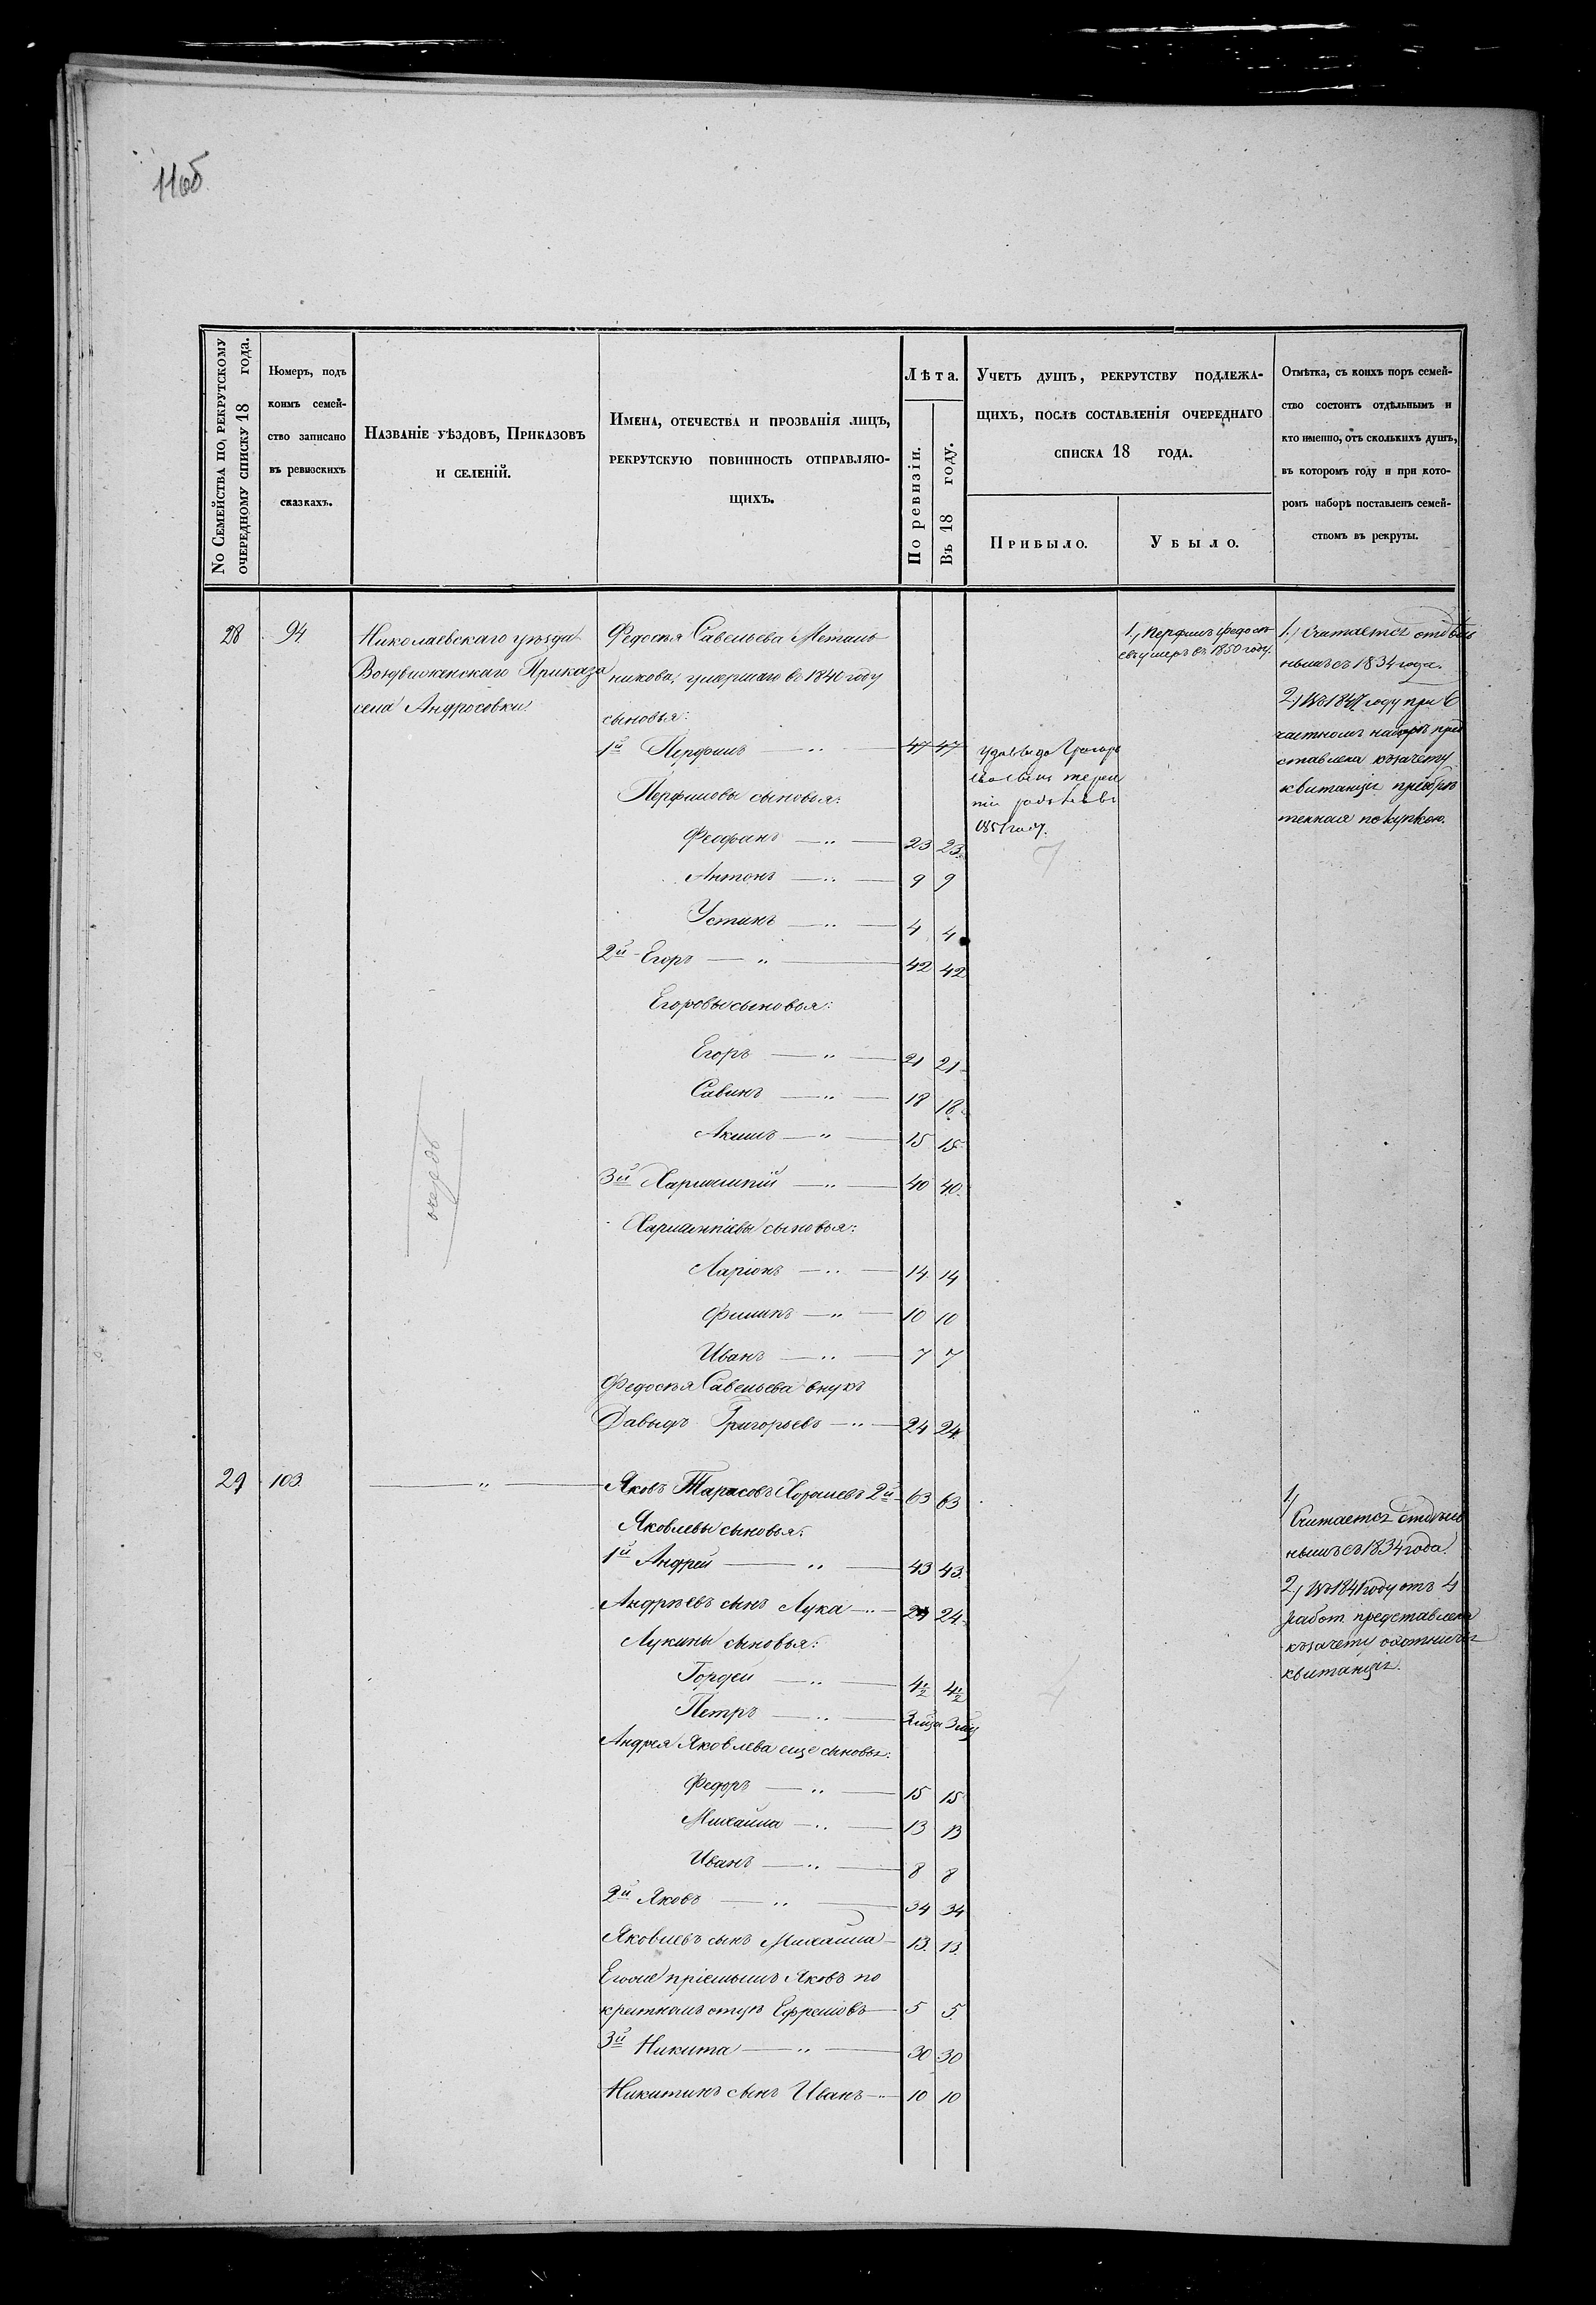 11об
№ Семейства по рекрутскому
очередному списку 18 года.
Номеръ, подъ
коимъ семей-
ство записано
въ ревизскихъ
сказкахъ.
Названіе уѣздовъ, Приказовъ
и селеній.
Имена, отечества и прозванія лицъ,
рекрутскую повинность отправляю-
щихъ.
Лѣта.
По ревизіи.
Въ 18 году.
Учетъ душъ, рекрутству подлежа-
щихъ, послѣ составленія очереднаго
списка 18 года.
Прибыло.
Убыло.
Отмѣтка, съ коихъ поръ семей-
ство состоитъ отдѣльнымъ и
кто именно, отъ сколькихъ душъ,
въ которомъ году и при кото-
ромъ наборѣ поставленъ семей-
ствомъ въ рекруты.
28 94
Николаевскаго уѣзда
Воздвиженскаго Приказа
села Андросовки
очередь
Федосѣя Савельева
никова, умершаго въ 1840 году
сыновья:
1й Перфилъ — " — 47 47
Перфиловы сыновья:
Феофанъ — " — 23 23
Антонъ — " — 9 9
Устинъ — " — 4 4
2й Егоръ — " — 42 42
Егоровы сыновья:
Егоръ — " — 21 21
Савинъ — " — 18 18
Акимъ — " — 15 15
3й Харлампій — " — 40 40
Харлампіевы сыновья:
Ларіонъ — " — 14 14
Филипъ — " — 10 10
Иванъ — " — 7 7
Федосѣя Савельева внукъ
Давыдъ Григорьевъ — " — 24 24
у Давыда Григорь
сынъ
родился въ
1851 году.
7
1, Перфилъ Федосѣ
евъ умеръ въ 1850 году.
1, Считается отдѣль
нымъ съ 1834 года.
2, Въ 1847 году при 6
частномъ наборѣ пред
ставлена къ зачету
квитанція пріобрѣ
тенная покупкою.
29 103
— " —
Яковъ Тарасовъ 2й 63 63
Яковлевы сыновья:
1й Андрей — " — 43 43
Андрѣевъ сынъ Лука — " — 24 24
Лукины сыновья:
Гордей — " — 4½ 4½
Петръ — " — 3 мца 3 мца
Андрея Яковлева еще сыновья:
Федоръ — " — 15 15
Михайла — " — 13 13
Иванъ — " — 8 8
2й Яковъ — " — 34 34
Яковлевъ сынъ Михайла — 13 13
Егоже пріемышъ Яковъ по
крестномъ отцѣ Ефремовъ — 5 5
3й Никита — " — 30 30
Никитинъ сынъ Иванъ — " 10 10
4
1,
Считается отдѣль
нымъ съ 1834 года.
2, Въ 1841 году отъ 4
работ представлена
къ зачету охотничья
квитанція.